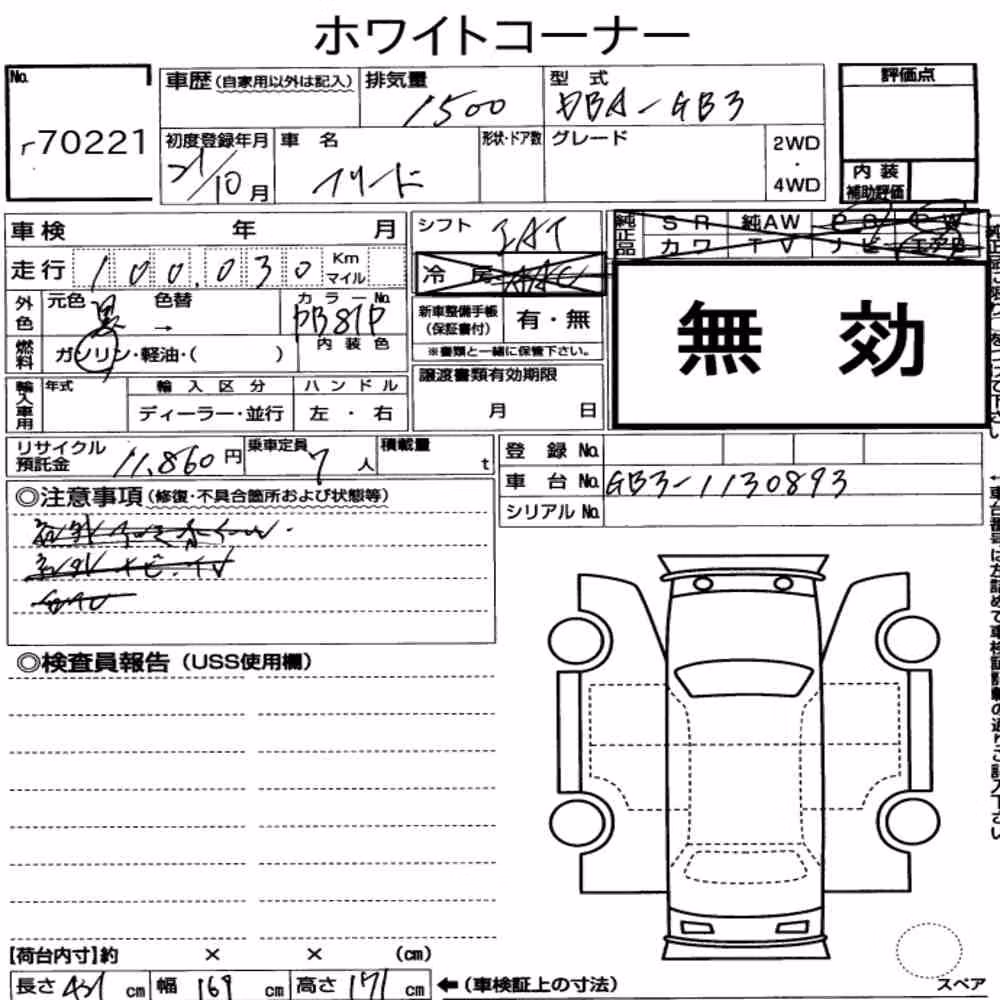 ホワイトコーナー
No. r70221
車歴(自家用以外は記入) 排気量 1500 型式 DBA-GB3 評価点
初度登録年月 21/10月 車名 フリード 形状・ドア数 グレード 2WD・4WD 内装補助評価
車検 年 月 シフト IAT 純正品 SR 純AW PS PW
カワ TV ナビ エアB
走行 100,030 Km マイル 冷房
外色 元色 黒 色替 → カラーNo. PB81P 新車整備手帳(保証書付) 有・無
無効
燃料 ガソリン・軽油・( ) 内装色 ※書類と一緒に保管下さい。
輸入車用 年式 輸入区分 ディーラー・並行 ハンドル 左・右 譲渡書類有効期限 月 日
リサイクル預託金 11,860円 乗車定員 7人 積載量 t 登録No.
車台No. GB3-1130893
シリアルNo.
◎注意事項(修復・不具合箇所および状態等)
◎検査員報告(USS使用欄)
【荷台内寸】約 × × (cm)
長さ 421 cm 幅 169 cm 高さ 171 cm ←(車検証上の寸法) スペア